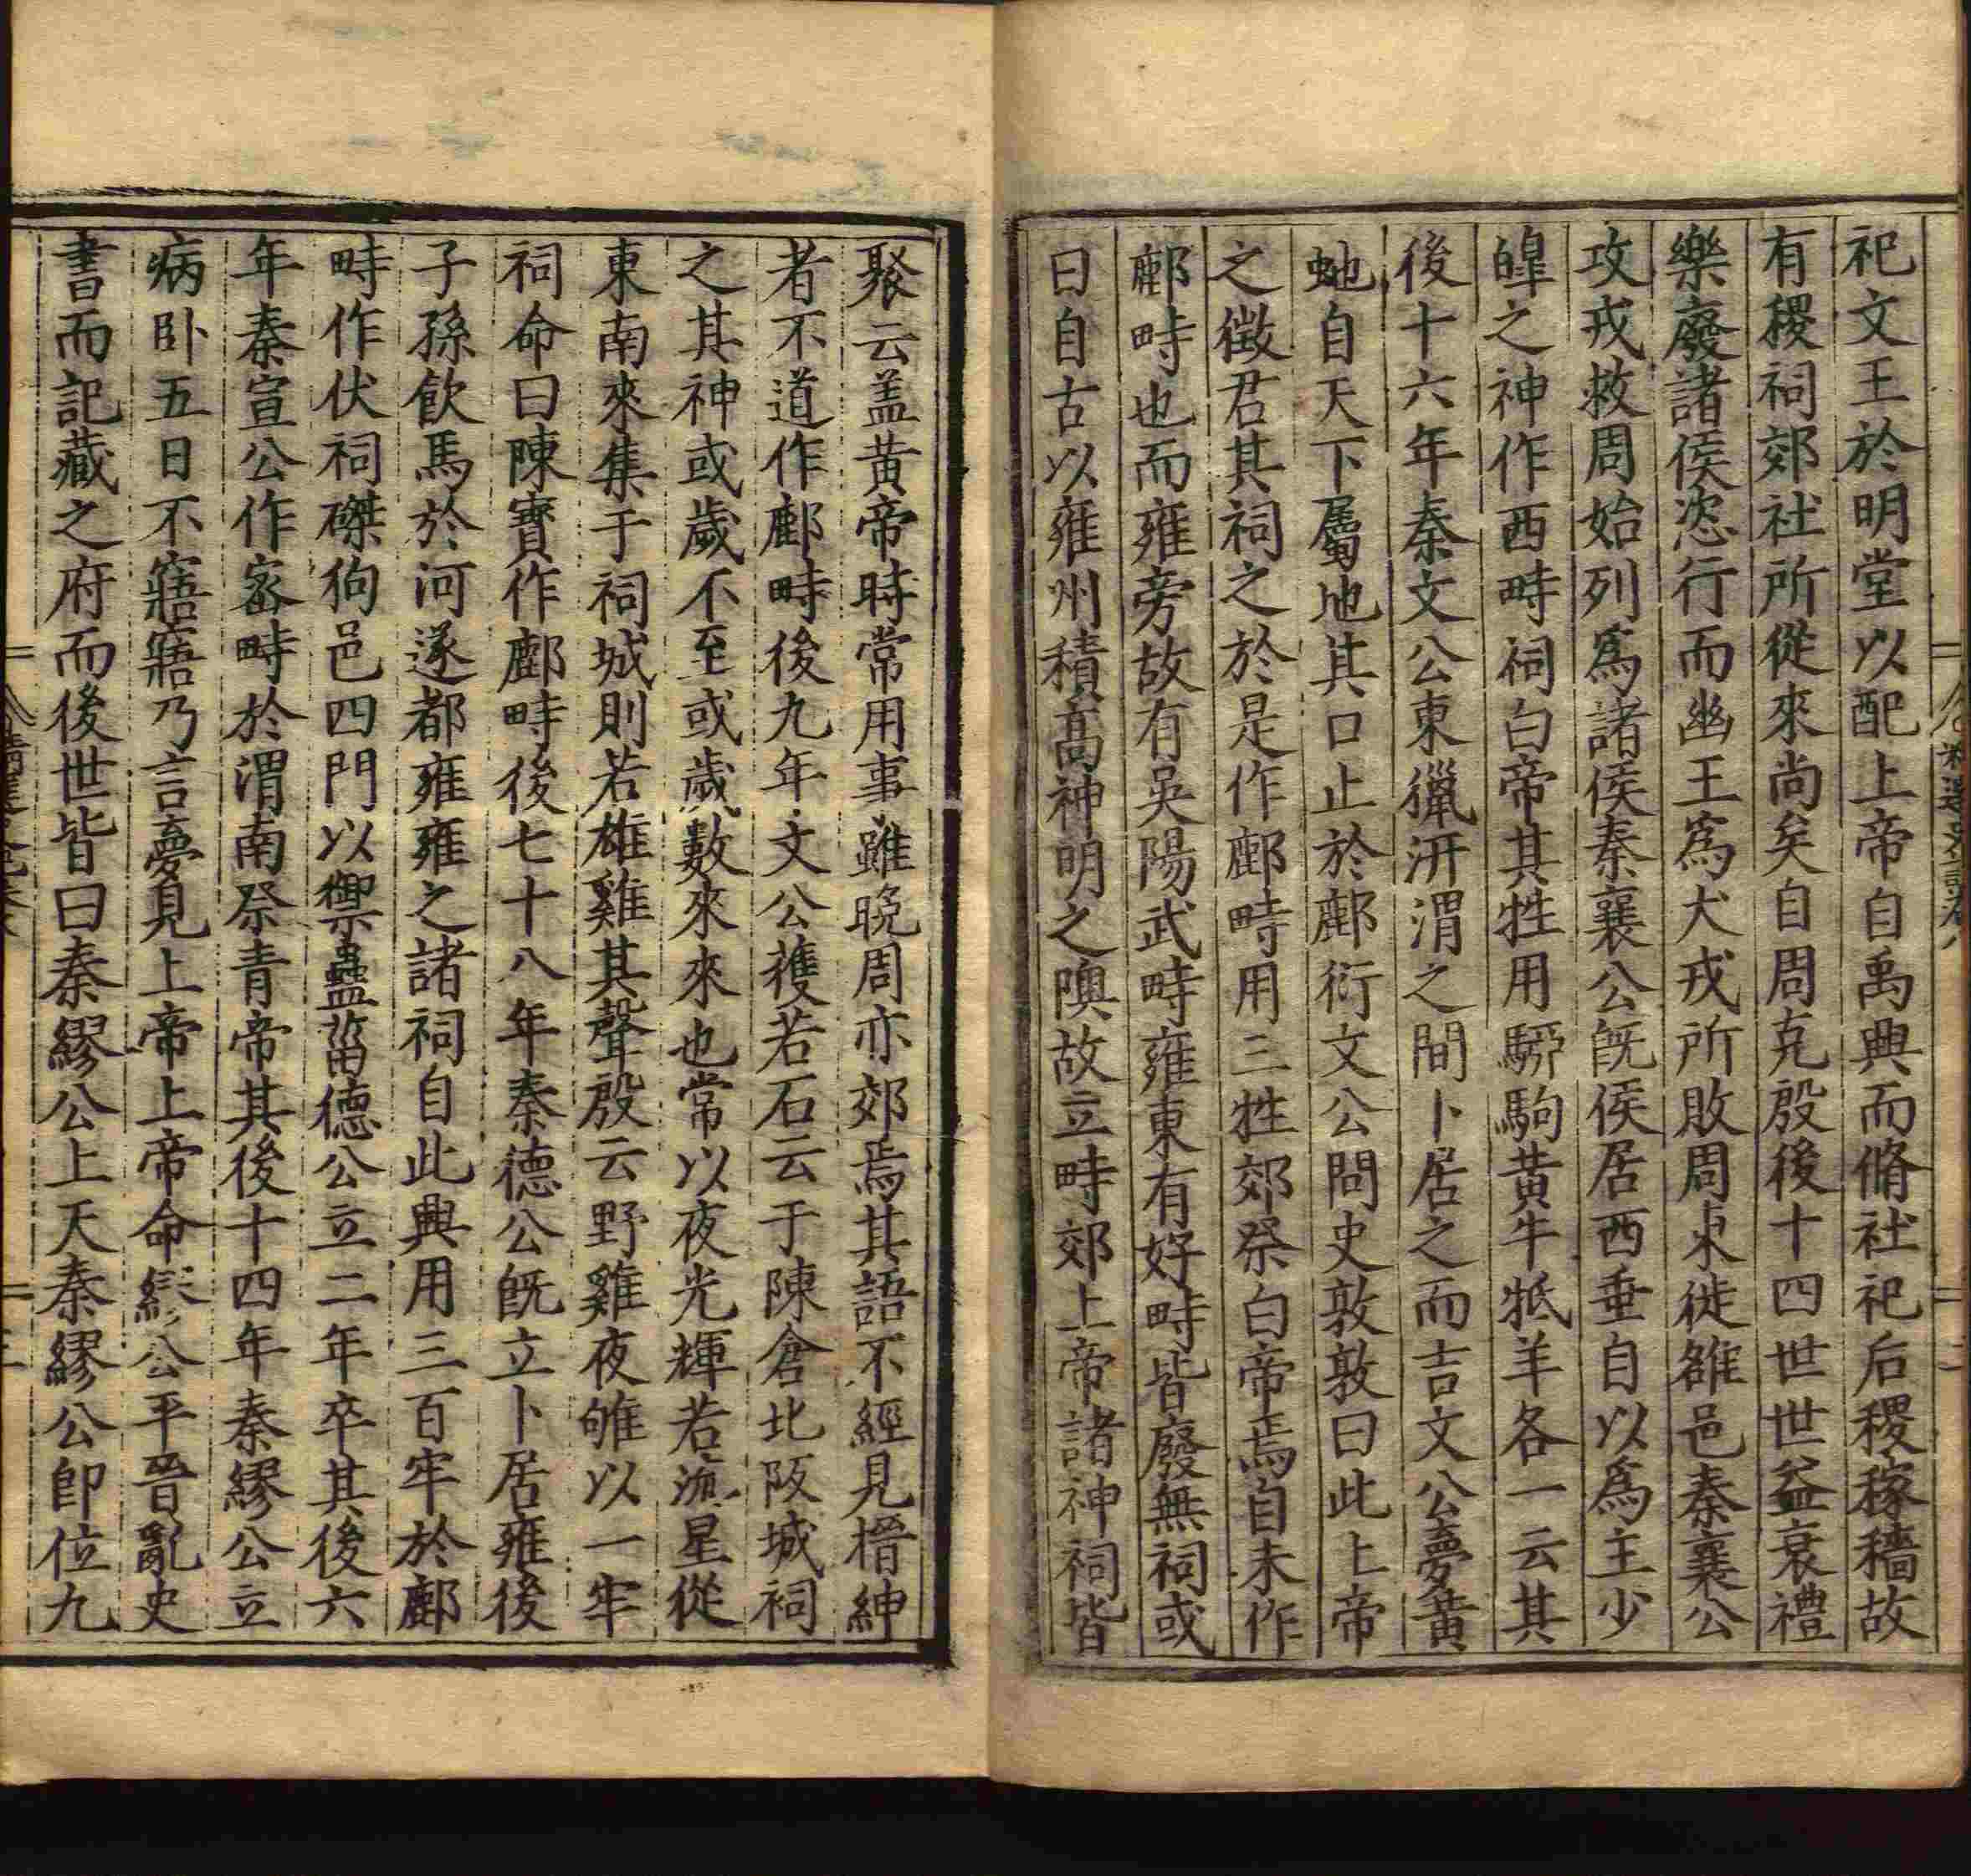 祀文王於明堂以配上帝自禹興而脩社祀后稷稼穡故
有稷祠郊社所從來尚矣自周克殷後十四世世益衰禮
樂廢諸侯恣行而幽王爲犬戎所敗周東徙雒邑秦襄公
攻戎救周始列爲諸侯秦襄公旣侯居西垂自以爲主少
皥之神作西畤祠白帝其牲用騮駒黃牛羝羊各一云其
後十六年秦文公東獵汧渭之間卜居之而吉文公夢黃
虵自天下屬地其口止於鄜衍文公問史敦敦曰此上帝
之徵君其祠之於是作鄜畤用三牲郊祭白帝焉自未作
鄜畤也而雍旁故有吳陽武畤雍東有好畤皆廢無祠或
曰自古以雍州積高神明之隩故立畤郊上帝諸神祠皆
聚云盖黃帝時常用事雖晚周亦郊焉其語不經見搢紳
者不道作鄜畤後九年文公獲若石云于陳倉北阪城祠
之其神或歲不至或歲數來來也常以夜光輝若流星從
東南來集于祠城則若雄雞其聲殷云野雞夜雊以一牢
祠命曰陳寶作鄜畤後七十八年秦德公旣立卜居雍後
子孫飮馬於河遂都雍雍之諸祠自此興用三百牢於鄜
畤作伏祠磔狗邑四門以禦蠱菑德公立二年卒其後六
年秦宣公作宻畤於渭南祭靑帝其後十四年秦繆公立
病卧五日不寤寤乃言夢見上帝上帝命繆公平晉亂史
書而記藏之府而後世皆曰秦繆公上天秦繆公卽位九